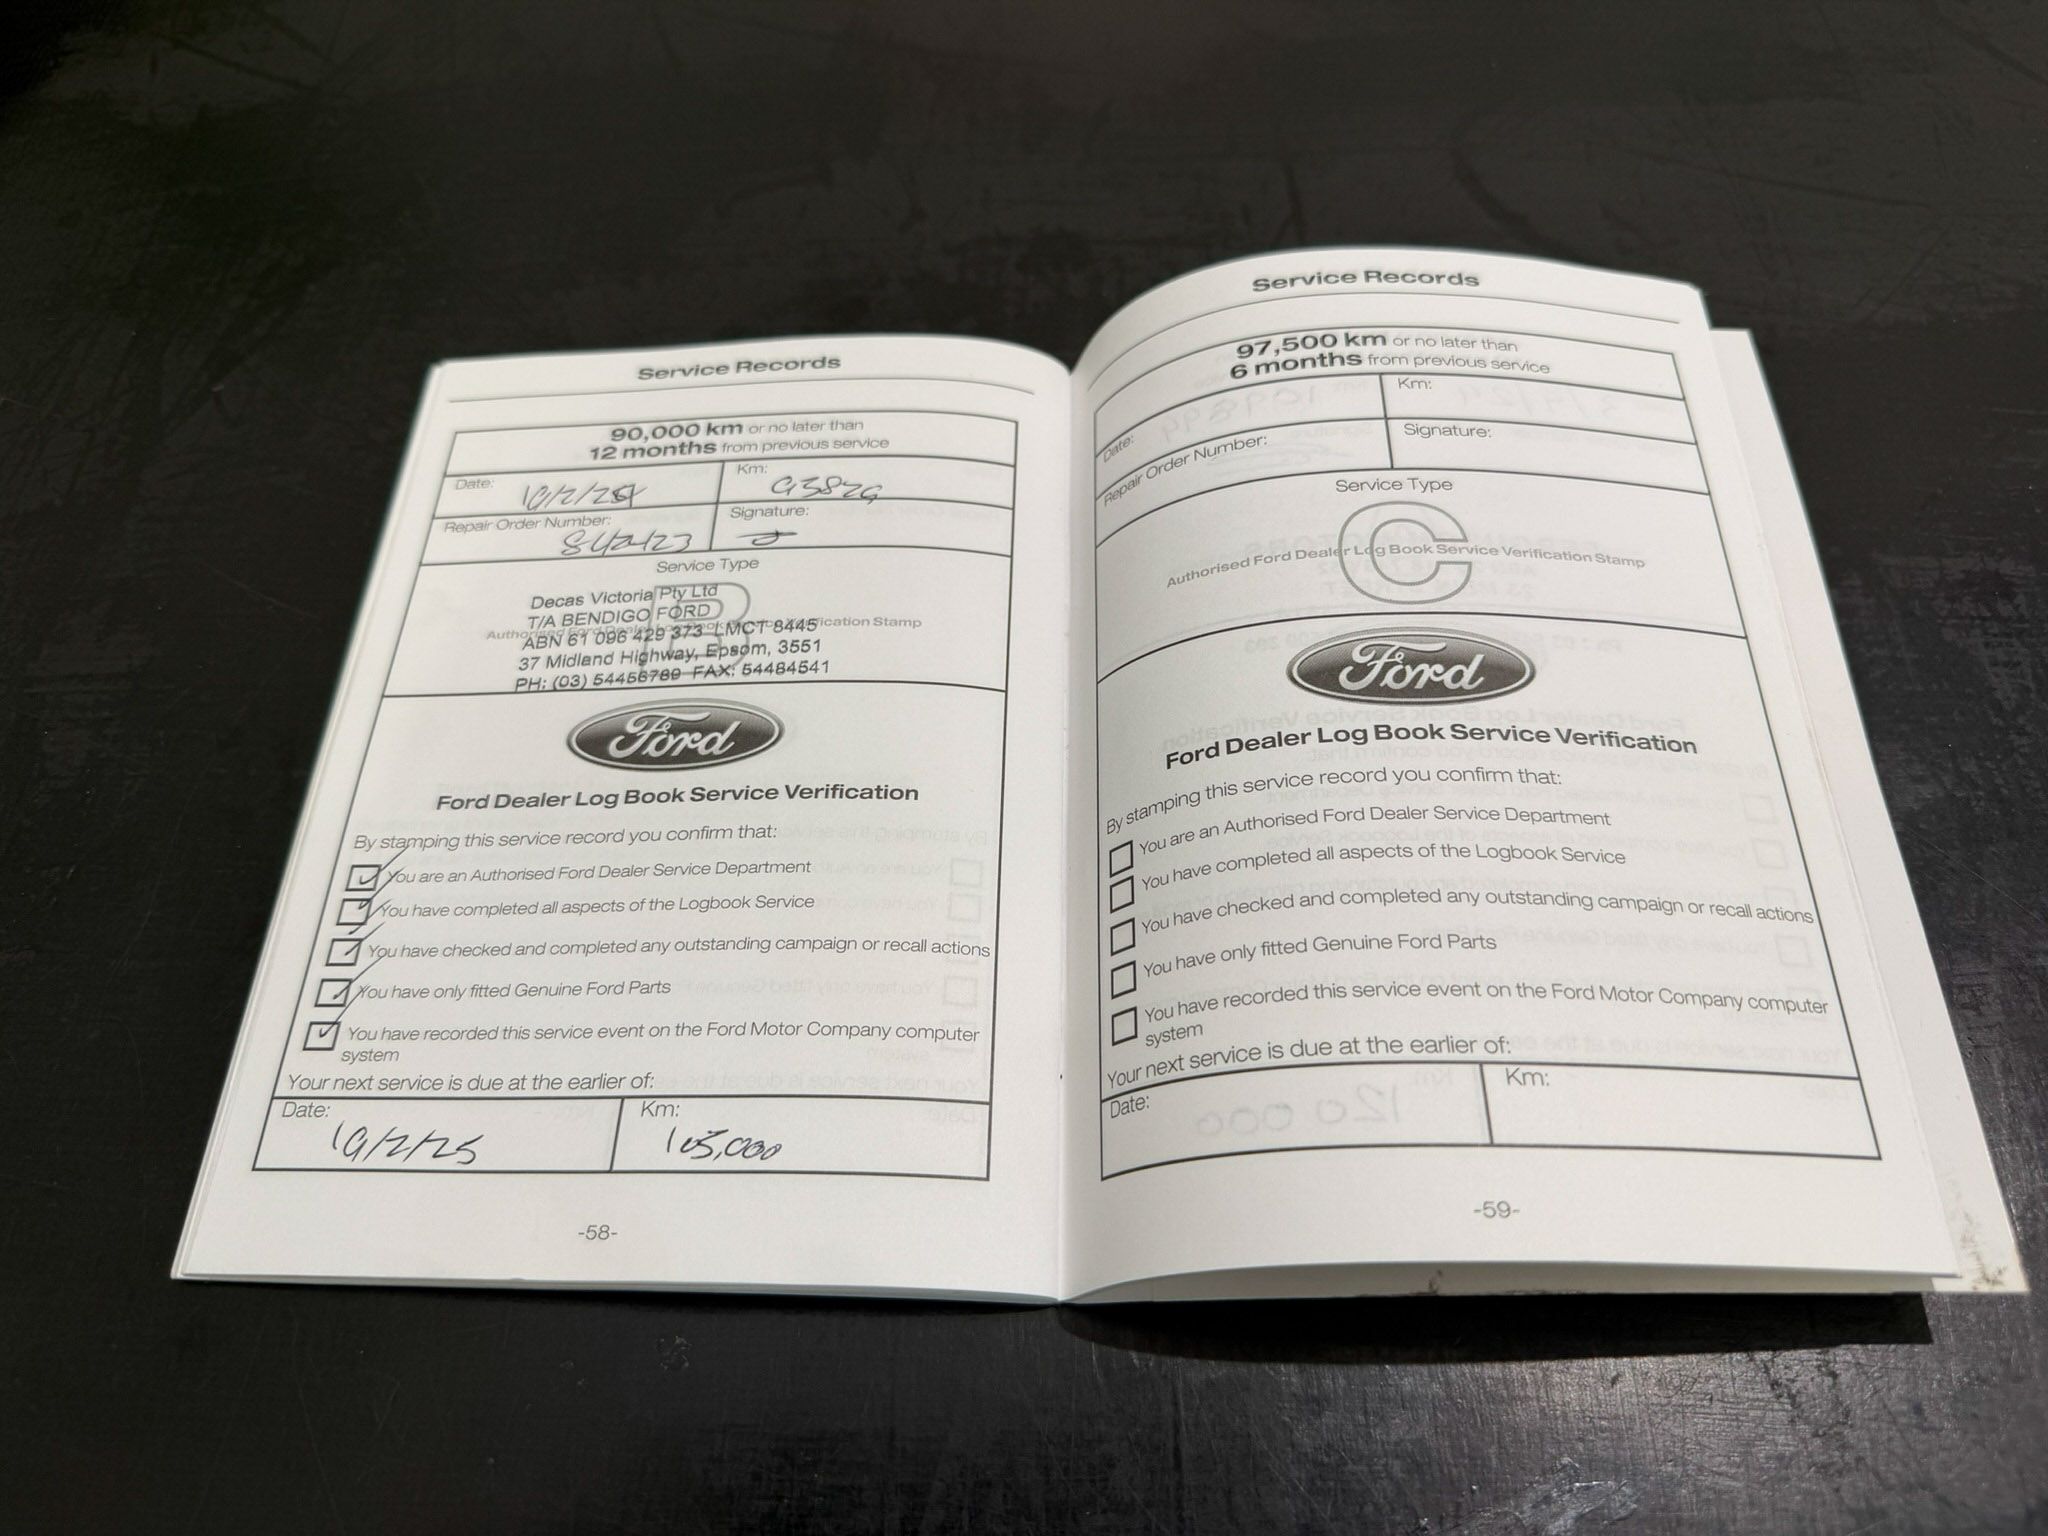 Service Records
90,000 km or no later than
12 months from previous service
Date: 19/2/24
Km: 93829
Repair Order Number:
Signature:
Service Type
B
Authorised Ford Dealer Log Book Service Verification Stamp
Decas Victoria Pty Ltd
T/A BENDIGO FORD
ABN 61 096 429 373 LMCT 8445
37 Midland Highway, Epsom, 3551
PH: (03) 54456789 FAX: 54484541
Ford
Ford Dealer Log Book Service Verification
By stamping this service record you confirm that:
You are an Authorised Ford Dealer Service Department
You have completed all aspects of the Logbook Service
You have checked and completed any outstanding campaign or recall actions
You have only fitted Genuine Ford Parts
You have recorded this service event on the Ford Motor Company computer
system
Your next service is due at the earlier of:
Date: 19/2/25
Km: 105,000
-58-
Service Records
97,500 km or no later than
6 months from previous service
Date:
Km:
Repair Order Number:
Signature:
Service Type
C
Authorised Ford Dealer Log Book Service Verification Stamp
Ford
Ford Dealer Log Book Service Verification
By stamping this service record you confirm that:
You are an Authorised Ford Dealer Service Department
You have completed all aspects of the Logbook Service
You have checked and completed any outstanding campaign or recall actions
You have only fitted Genuine Ford Parts
You have recorded this service event on the Ford Motor Company computer
system
Your next service is due at the earlier of:
Date:
Km:
-59-